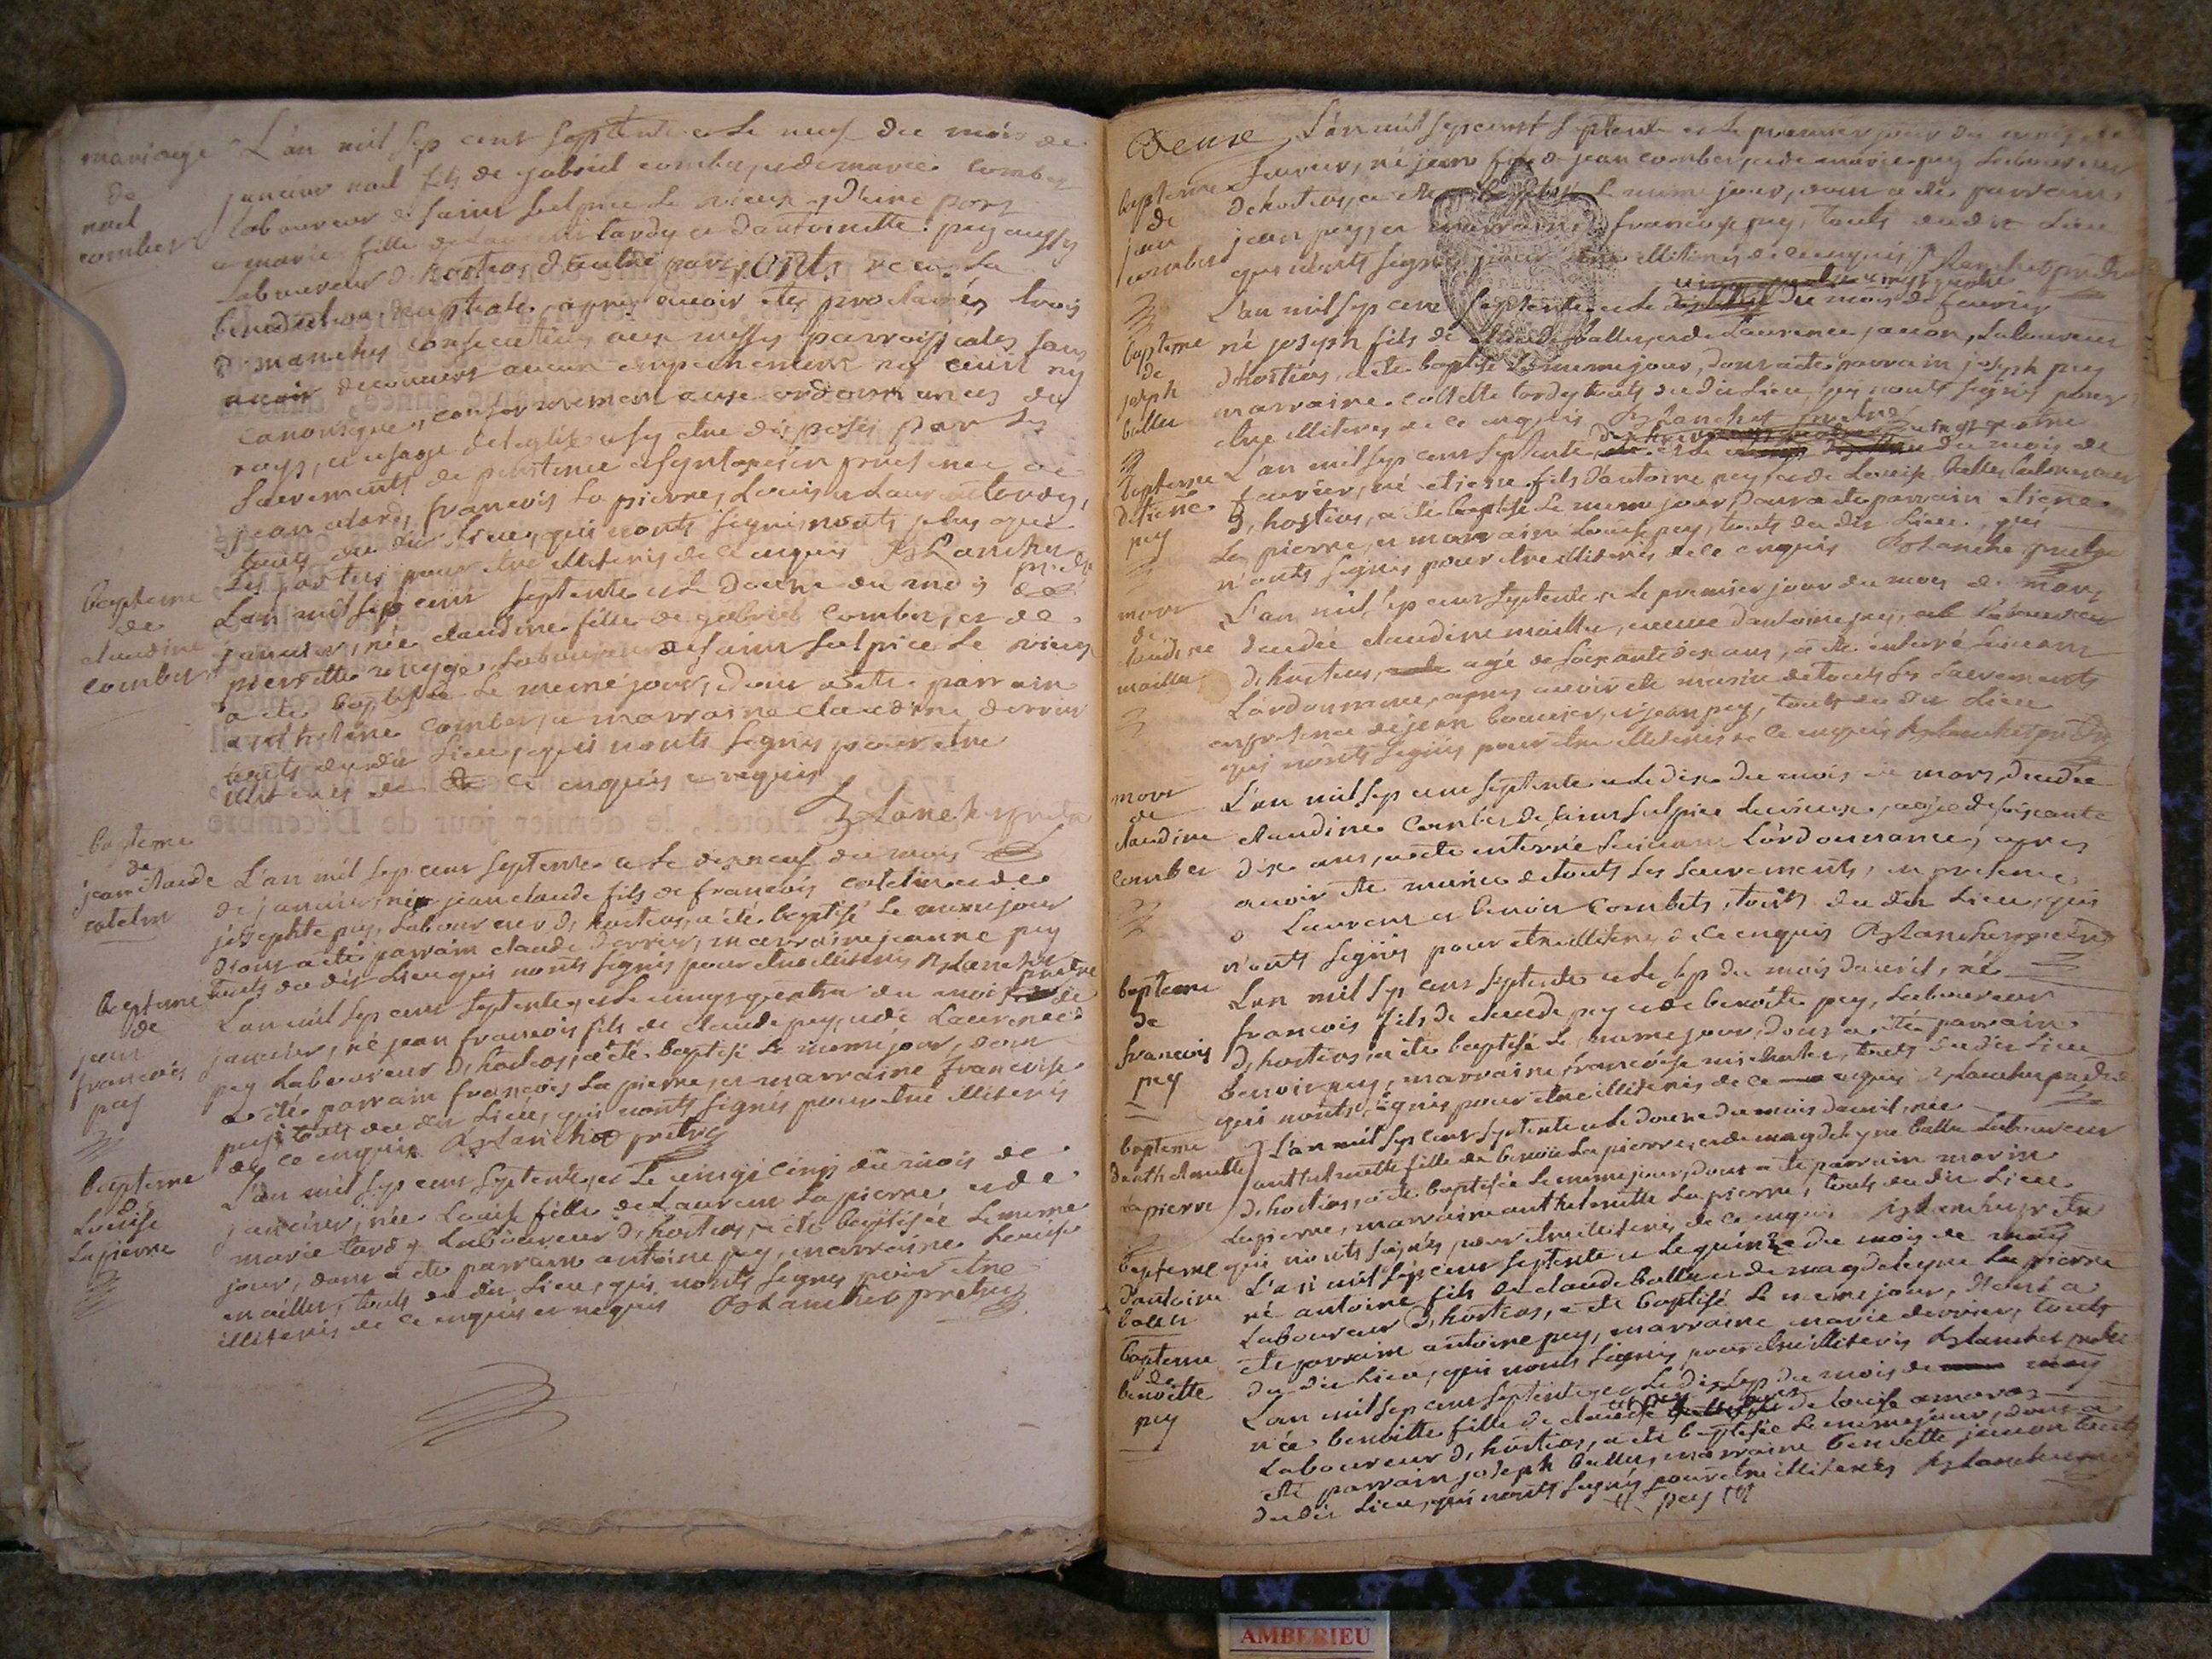 mariage
de
noel
combet
L'an mil sep cent septente et le neuf du mois de
janvier noel fils de gabriel combet, et de marie combet
laboureur de saint sulpice le vieux d'une part
et marie fille de laurent tardy et d'antoinette pey aussy
laboureur d'hostias d'autre part, ont receu la
benediction nuptiale, apres avoir etes proclamés trois
dimanches consecutives aux messes parroissiales sans
avoir decouvers aucun empechement ny civil ny
canonique, conformement aux ordonnances du
roys, et usage de l'eglise, s'y etre disposés par les
sacrements de penitence
jean francois la pierre, Louis et Laurent tardy,
touts du dit lieu, qui n'onts signés, nonts plus que
les parties pour etre illiterés de ce enquis Blanchet
prêtre
bapteme
de
claudine
combet
L'an mil sep cent septente et le douze du mois de
janvier, née claudine fille de gabriel combet, et de
pierrette laboureur de saint sulpice le vieux
a été baptisée le meme jour, dont a été parrain
anthelme combet, et marraine claudine
touts du dit lieu, qui n'onts signés pour etre
illiterés de ce enquis et requis
Blanchet prêtre
bapteme
de
jean claude
catelin
L'an mil sep cent septente et le dix neuf du mois
de janvier, né jean claude fils de francois catelin et de
josephte pey, laboureur d'hostias, a été baptisé le meme jour
dont a été parrain claude derrier, marraine jeanne pey
touts du dit lieu qui n'onts signés pour etre illiterés Blanchet
prêtre
bapteme
de
jean
francois
pey
L'an mil sep cent septente, et le vingt quatre du mois de
janvier, né jean francois fils de claude pey, et de Laurence
pey laboureur d'hostias, a été baptisé le meme jour, dont
a été parrain francois la pierre, et marraine francoise
pey, touts du dit lieu, qui n'onts signés pour etre illiterés
de ce enquis Blanchet prêtre
bapteme
d
Louise
La pierre
L'an mil sep cent septente, et le vingt cinq du mois de
janvier, née Louise fille de Laurent La pierre et de
marie tardy laboureur d'hostias, a été baptisée le meme
jour, dont a été parrain antoine pey, marraine Louise
maillet, touts du dit lieu, qui n'onts signés pour etre
illiterés de ce enquis et requis Blanchet prêtre
Deuxe
bapteme
de
jean
combet
L'an mil sep cent septente et le premier jour du mois de
fevrier, né jean fils de jean combet, et de marie pey laboureur
d'hostias, a été baptisé le meme jour, dont a été parrain
jean pey, et marraine francoise pey, touts du dit lieu
qui n'onts signés pour etre illiterés de ce enquis Blanchet prêtre
bapteme
de
joseph
ballet
vingt quatre
L'an mil sep cent septente et le du mois de fevrier
né joseph fils de claude ballet, et de Laurence janon, laboureur
d'hostias, a été baptisé le meme jour, dont a été parrain joseph pey
marraine colette tardy touts du dit lieu, qui n'onts signés pour
etre illiterés de ce enquis Blanchet prêtre
bapteme
d'etiene
pey
L'an mil sep cent septente et le du mois de
fevrier, né etiene fils d'antoine pey, et de Louise ballet laboureur
d'hostias, a été baptisé le meme jour, dont a été parrain etiene
La pierre, et marraine Louise pey, touts du dit lieu, qui
n'onts signés pour etre illiterés de ce enquis Blanchet prêtre
mort
de
claudine
maillet
L'an mil sep cent septente et le premier jour du mois de mars
decedée claudine maillet, veuve d'antoine pey, laboureur
d'hostias, agé de soixante dix ans, a été enterré suivant
L'ordonnance, apres avoir été munie de touts les sacrements
en presence de jean et jean pey, touts du dit lieu
qui n'onts signés pour etre illiterés de ce enquis Blanchet prêtre
mort
de
claudine
combet
L'an mil sep cent septente et le dixe du mois de mars, decedée
claudine combet de saint sulpice le vieux, agée de soixante
dix ans, a été enterrée suivant L'ordonnance, apres
avoir été munie de touts les sacrements, en presence
d Laurent et benoit combets, touts du dit lieu, qui
n'onts signés pour etre illiterés de ce enquis Blanchet prêtre
bapteme
de
francois
pey
L'an mil sep cent septente et le sep du mois d'avril, né
francois fils de claude pey et de benoite pey, laboureur
d'hostias, a été baptisé le meme jour, dont a été parrain
benoit pey, marraine francoise touts du dit lieu
qui n'onts signés pour etre illiterés de ce enquis Blanchet prêtre
bapteme
d'anthelmette
La pierre
L'an mil sep cent septente et le douze du mois d'avril, née
anthelmette fille de benoit La pierre, et de magdeleyne ballet laboureur
d'hostias, a été baptisée le meme jour, dont a été parrain marin
Lapierre, marraine anthelmette La pierre, touts du dit lieu
qui n'onts signés pour etre illiterés de ce enquis Blanchet prêtre
bapteme
d'antoine
ballet
L'an mil sep cent septente et le quinze du mois de may
né antoine fils de claude ballet et de magdeleyne La pierre
Laboureur d'hostias, a été baptisé le meme jour, dont a
été parrain antoine pey, marraine marie derrier, touts
du dit lieu, qui n'onts signés pour etre illiterés Blanchet prêtre
bapteme
de
benoitte
pey
L'an mil sep cent septente et le dix sep du mois de may
née benoitte fille de claude de Louise
Laboureur d'hostias, a été baptisée le meme jour, dont a
été parrain joseph ballet, marraine benoitte janon touts
du dit lieu, qui n'onts signés pour etre illiterés Blanchet
pey
AMBERIEU